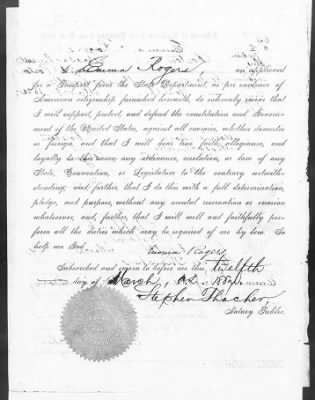 I, Emma Rogers, an applicant
for a Passport from the State Department, as per evidence of
American citizenship furnished herewith, do solemnly swear that
I will support, protect, and defend the constitution and Govern-
ment of the United States, against all enemies, whether domestic
or foreign, and that I will bear true faith, allegiance, and
loyalty to the same, any ordinance, resolution, or law of any
State, Convention, or Legislature to the contrary notwith-
standing; and further, that I do this with a full determination,
pledge, and purpose, without any mental reservation or evasion
whatsoever, and, further, that I will well and faithfully per-
form all the duties which may be required of me by law. So
help me God.
Emma Rogers
Subscribed and sworn to before me this twelfth
day of March, A.D.
Stephen Thacher,
Notary Public.